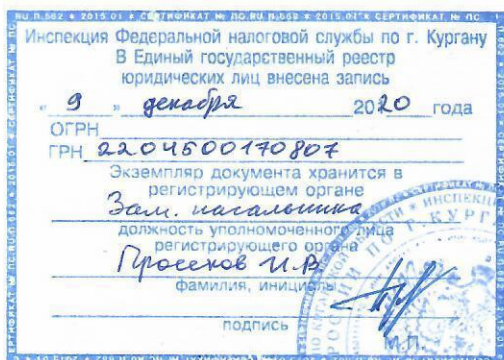 RU.П.562 * 2015.01 * СЕРТИФИКАТ № ПС.RU.П.562 * 2015.01 * СЕРТИФИКАТ № ПС
Инспекция Федеральной налоговой службы по г. Кургану
В Единый государственный реестр
юридических лиц внесена запись
« 9 » декабря 2020 года
ОГРН
ГРН 2204500170807
Экземпляр документа хранится в
регистрирующем органе
Зам. начальника
должность уполномоченного лица
регистрирующего органа
И.В.
фамилия, инициалы
подпись
М.П.
ИНСПЕКЦИ
ПО Г. КУРГ